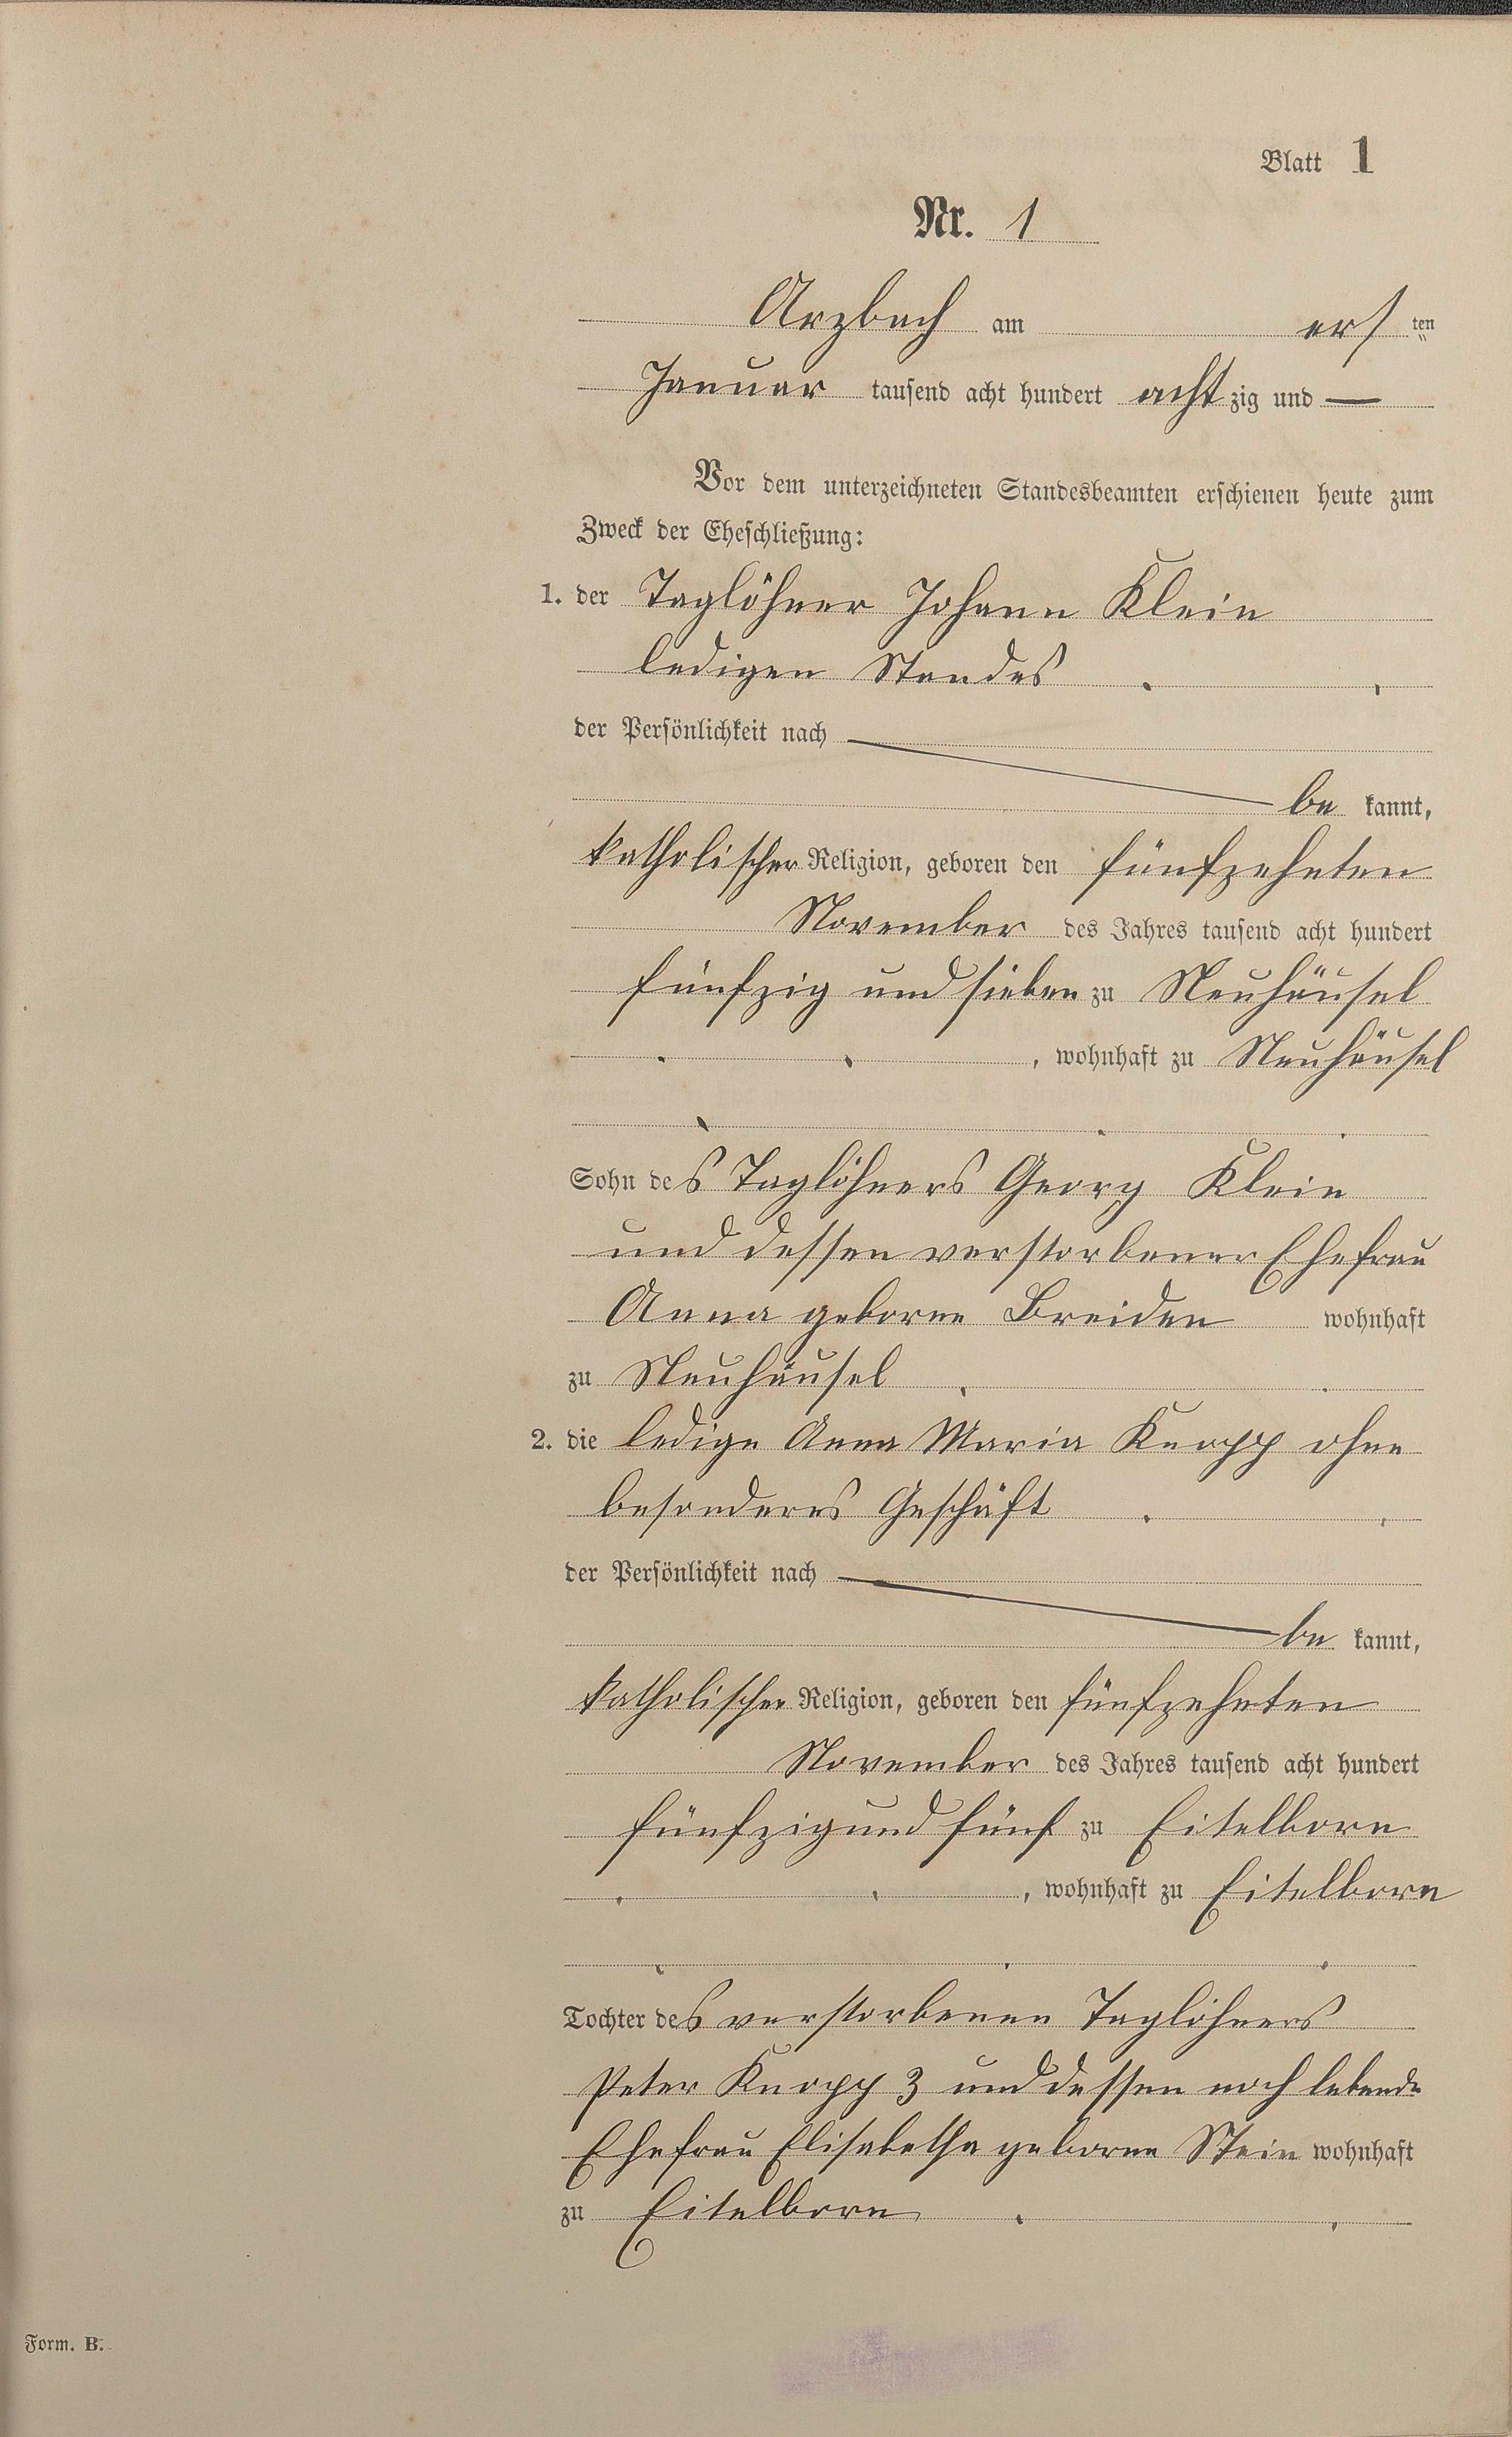 Blatt 1
Nr. 1
Arzbach am ersten
Januar tausend acht hundert achtzig und —
Vor dem unterzeichneten Standesbeamten erschienen heute zum
Zweck der Eheschließung:
1. der Taglöhner Johann Klein
ledigen Standes
der Persönlichkeit nach
be kannt,
katholischer Religion, geboren den fünfzehnten
November des Jahres tausend acht hundert
fünfzig und sieben zu Neuhäusel
, wohnhaft zu Neuhäusel
Sohn des Taglöhners Georg Klein
und dessen verstorbener Ehefrau
Anna geborne Breiden wohnhaft
zu Neuhäusel
2. die ledige Anna Maria Knopp ohne
besonderes Geschäft
der Persönlichkeit nach
be kannt,
katholischer Religion, geboren den fünfzehnten
November des Jahres tausend acht hundert
fünfzig und fünf zu Eitelborn
, wohnhaft zu Eitelborn
Tochter des verstorbenen Taglöhners
Peter Knopp 3 und dessen noch lebende
Ehefrau Elisabetha geborne Stein wohnhaft
zu Eitelborn
Form. B.